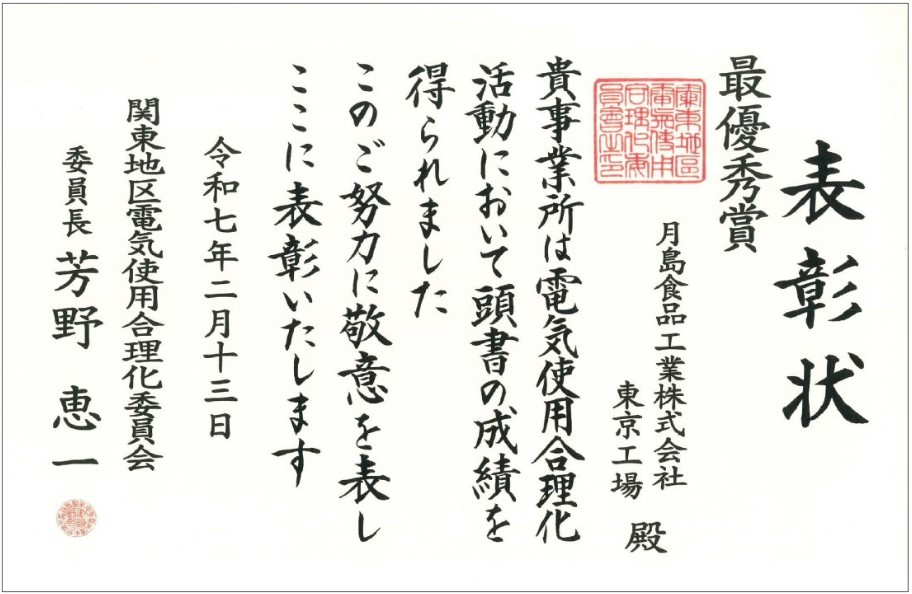 表彰状
最優秀賞
月島食品工業株式会社
東京工場 殿
貴事業所は電気使用合理化
活動において頭書の成績を
得られました
このご努力に敬意を表し
ここに表彰いたします
令和七年二月十三日
関東地区電気使用合理化委員会
委員長 芳野 恵一